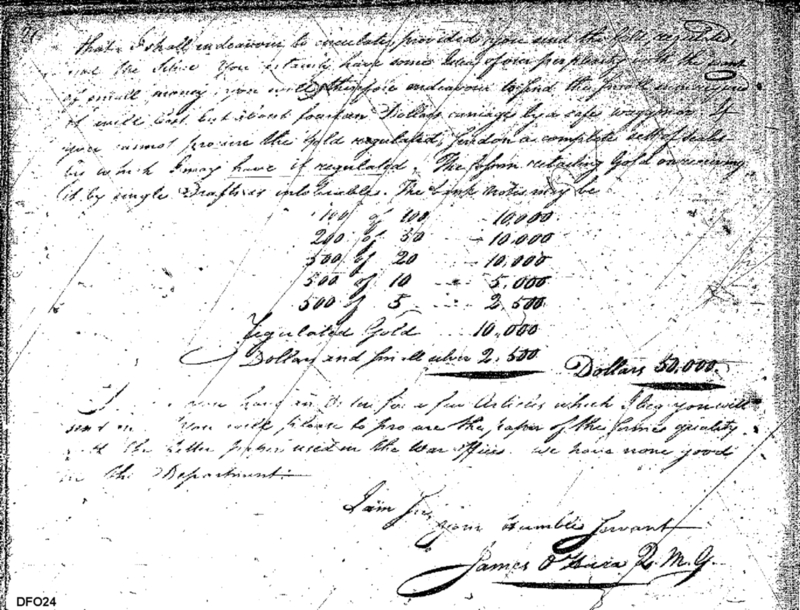 that I shall endeavour to circulate, provided you send the Gold regulated,
and the Silver. You certainly have some Idea of our perplexity with the want
of small money, you will therefore endeavour to find the
it will cost but about fourteen Dollars carriage by a safe waggoner. If
you cannot procure the Gold regulated, send on a complete sett of scales
by which I may have it regulated. The person retailing Gold on receiving
it by single Drafts is intolerable. The bank notes may be
100 of 100 10,000
200 of 50 10,000
500 of 20 10,000
500 of 10 5,000
500 of 5 2,500
regulated Gold 10,000
Dollars and small silver 2,500 Dollars 50,000.
for a few Articles which I beg you will
send on You will please to procure the paper of the same quality
with the letter paper used in the War office. we have none good
in the Department
I am Sir,
your Humble Servant
James O'Hara Q. M. G.
DFO24